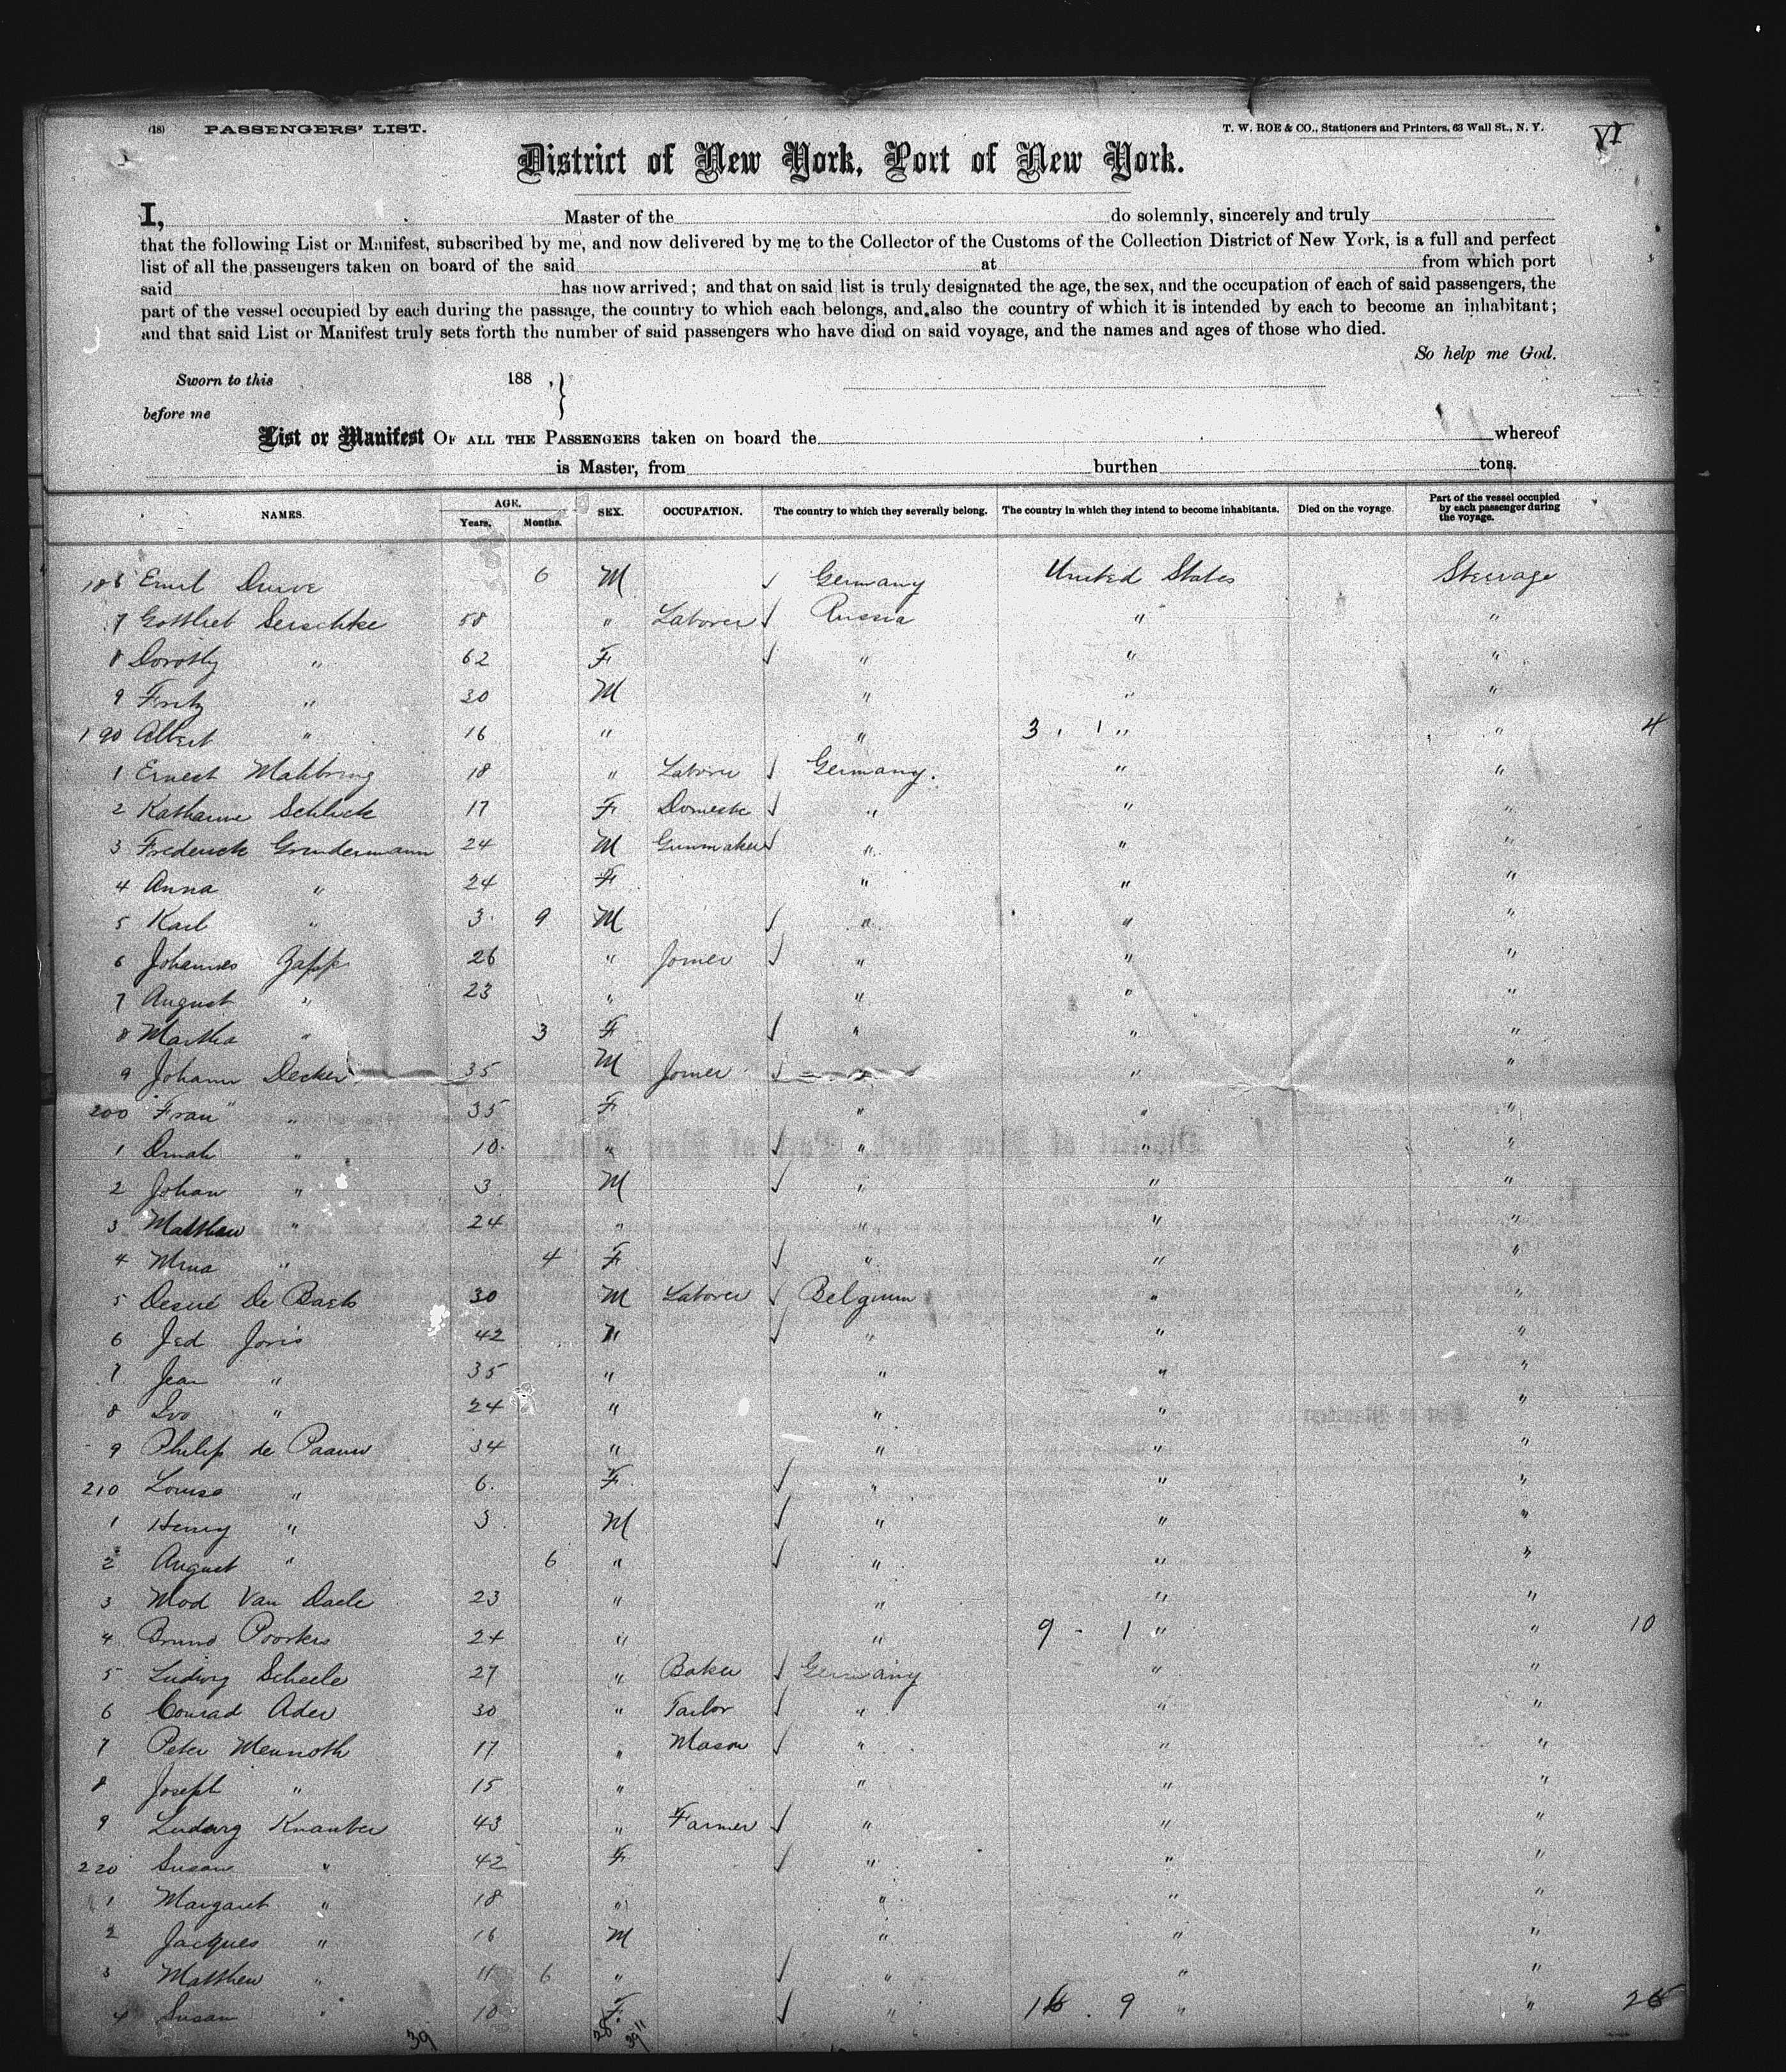 (18) PASSENGERS' LIST. T. W. ROE & CO., Stationers and Printers, 63 Wall St., N. Y. VI
District of New York, Port of New York.
I, Master of the do solemnly, sincerely and truly
that the following List or Manifest, subscribed by me, and now delivered by me to the Collector of the Customs of the Collection District of New York, is a full and perfect
list of all the passengers taken on board of the said at from which port
said has now arrived; and that on said list is truly designated the age, the sex, and the occupation of each of said passengers, the
part of the vessel occupied by each during the passage, the country to which each belongs, and also the country of which it is intended by each to become an inhabitant;
and that said List or Manifest truly sets forth the number of said passengers who have died on said voyage, and the names and ages of those who died.
So help me God.
Sworn to this 188 , }
before me
List or Manifest OF ALL THE PASSENGERS taken on board the whereof
is Master, from burthen tons.
NAMES. AGE. Years. Months. SEX. OCCUPATION. The country to which they severally belong. The country in which they intend to become inhabitants. Died on the voyage. Part of the vessel occupied by each passenger during the voyage.
186 Emil 6 M √ Germany United States Steerage
7 Gottlieb Serschke 58 " Laborer √ Russia " "
8 Dorothy " 62 F √ " " "
9 Fritz " 30 M " " "
190 Albert " 16 " " 3 . 1 " " 4
1 Ernest 18 " Laborer √ Germany. " "
2 Katharine Schlick 17 F Domestic √ " " "
3 Frederick Grundermann 24 M Gunmaker √ " " "
4 Anna " 24 F " " "
5 Karl " 3 9 M √ " " "
6 Johannes Zapp 26 " Joiner √ " " "
7 August " 23 " " " "
8 Martha " 3 F √ " " "
9 Johann Decker 35 M Joiner √ " " "
200 "Frau" " 35 F " " "
1 " 10 " √ " " "
2 Johan " 3 M √ " " "
3 Matthew " 24 " " " "
4 Mina " 4 F √ " " "
5 Desiré De Baets 30 M Laborer √ Belgium " "
6 Jed Joris 42 " √ " " "
7 Jean " 35 " " " "
8 Ivo " 24 " " " "
9 Philip de Paauw 34 " " " "
210 Louise " 6 F √ " " "
1 Henry " 3 M √ " " "
2 August " 6 " √ " " "
3 Mod Van Daele 23 " " " "
4 Bruno Poorters 24 " " 9 - 1 " " 10
5 Ludwig Scheele 27 " Baker √ Germany " "
6 Conrad Ader 30 " Tailor √ " " "
7 Peter Mennoth 17 " Mason √ " " "
8 Joseph " 15 " " " "
9 Ludwig Knauber 43 " Farmer √ " " "
220 Susan " 42 F √ " " "
1 Margaret " 18 " " " "
2 Jacques " 16 M " " "
3 Matthew " 11 6 " √ " " "
4 Susan " 10 F √ " 9 " "
39 28 39 11